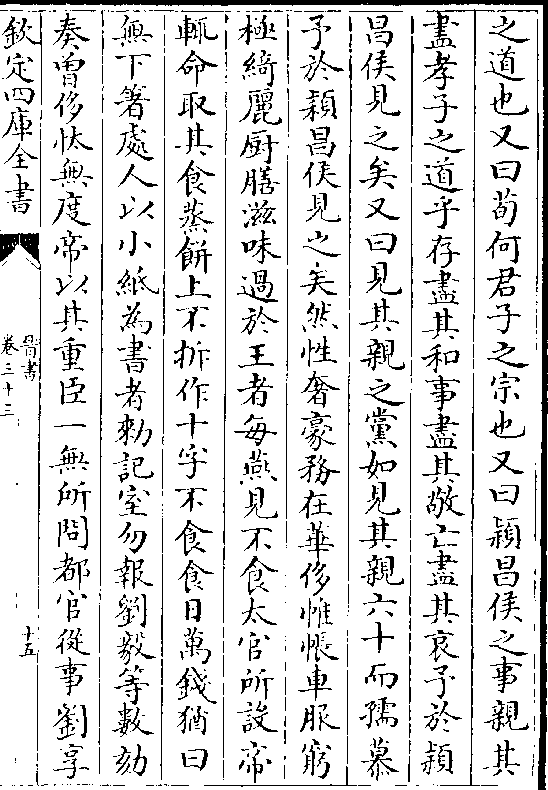 之道也又曰荀何君子之宗也又曰頴昌侯之事親其
盡孝子之道乎存盡其和事盡其敬亡盡其哀予於頴
昌侯見之矣又曰見其親之黨如見其親六十而孺慕
予於頴昌侯見之矣然性奢豪務在華侈帷帳車服窮
極綺麗厨膳滋味過於王者每燕見不食太官所設帝
輒命取其食蒸餅上不拆作十字不食食日萬錢猶曰
無下箸處人以小紙為書者勑記室勿報劉毅等數劾
奏曽侈忲無度帝以其重臣一無所問都官從事劉享
欽定四庫全書
晉書
卷三十三
十五